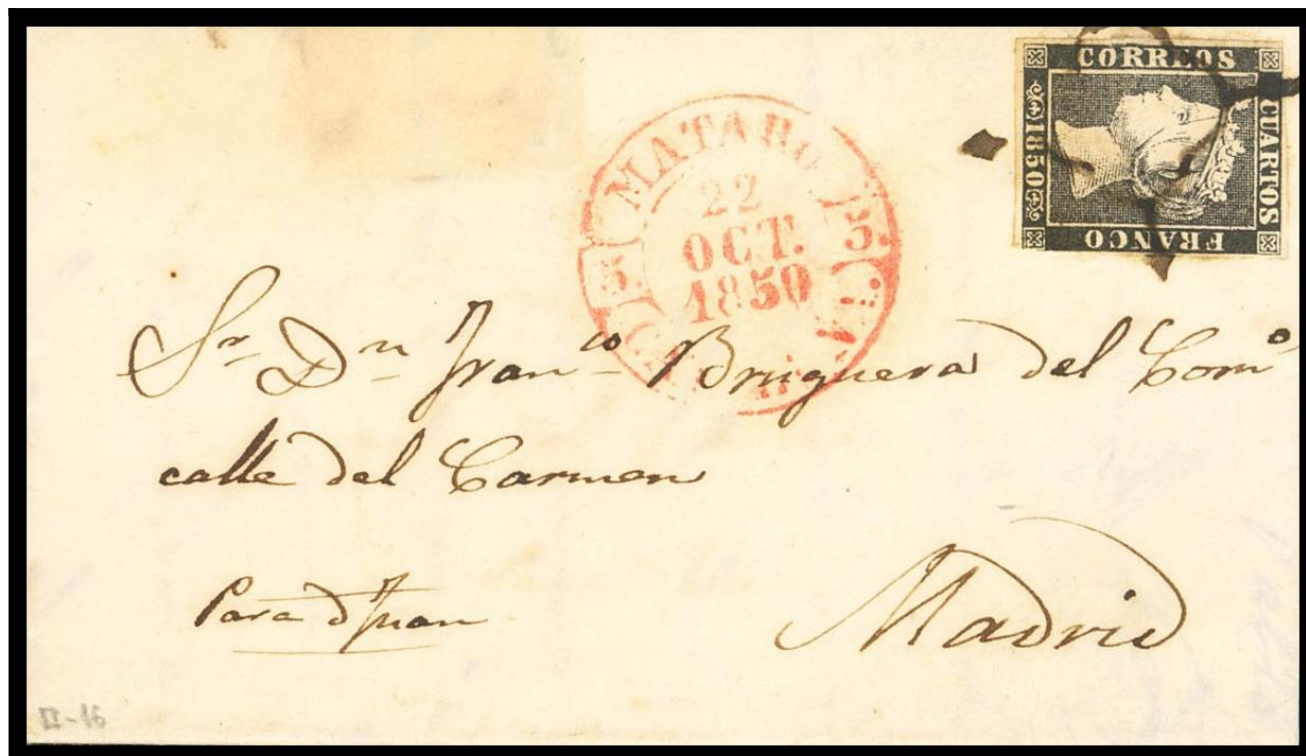 CORREOS
CUARTOS
1850
FRANCO
MATARO
22
OCT.
1850
5.
5.
Sr. Dn. Franco. Bruguera del Como
calle del Carmen
Para D Juan
Madrid
II-16